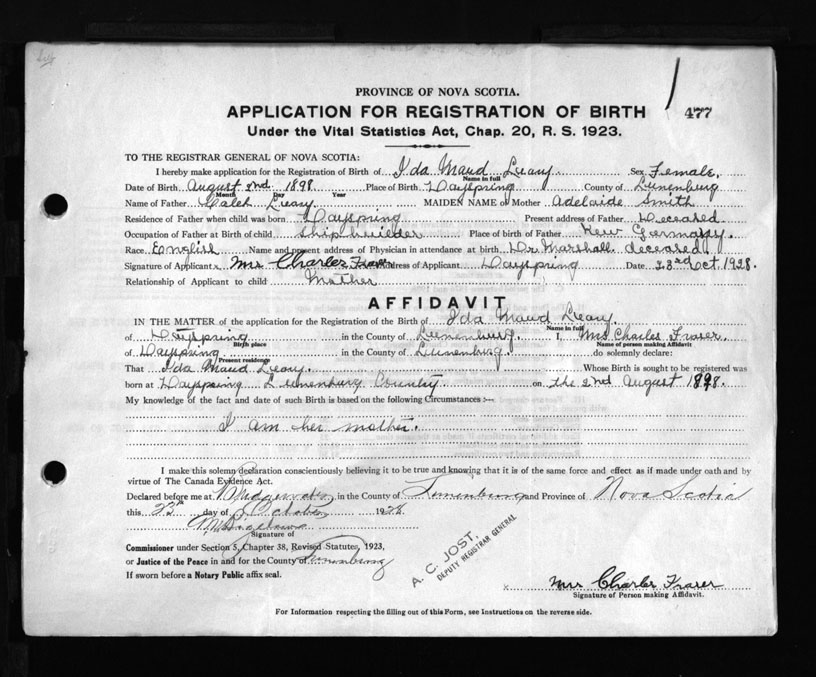 PROVINCE OF NOVA SCOTIA.
APPLICATION FOR REGISTRATION OF BIRTH
477
Under the Vital Statistics Act, Chap. 20, R. S. 1923.
TO THE REGISTRAR GENERAL OF NOVA SCOTIA:
I hereby make application for the Registration of Birth of Ida Maud Leary Sex Female.
Name in full
Date of Birth August 2nd 1898 Place of Birth Dayspring County of Lunenburg
Month Day Year
Name of Father Caleb Leary MAIDEN NAME of Mother Adelaide Smith
Residence of Father when child was born Dayspring Present address of Father Deceased
Occupation of Father at Birth of child Ship builder Place of birth of Father New Germany
Race English Name and present address of Physician in attendance at birth Dr Marshall. deceased.
Signature of Applicant x Mrs Charles Fraser Address of Applicant Dayspring Date 23rd Oct. 1928.
Relationship of Applicant to child Mother
AFFIDAVIT
IN THE MATTER of the application for the Registration of the Birth of Ida Maud Leary.
Name in full
of Dayspring in the County of Lunenburg. I, Mrs Charles Fraser.
Birth place Name of person making Affidavit
of Dayspring in the County of Lunenburg. do solemnly declare:
Present residence
That Ida Maud Leary. Whose Birth is sought to be registered was
born at Dayspring Lunenburg County on the 2nd August 1898.
My knowledge of the fact and date of such Birth is based on the following Circumstances :—
I am her mother.
I make this solemn declaration conscientiously believing it to be true and knowing that it is of the same force and effect as if made under oath and by
virtue of The Canada Evidence Act.
Declared before me at Bridgewater in the County of Lunenburg and Province of Nova Scotia
this 23rd day of October 1928
Signature of
Commissioner under Section 5, Chapter 38, Revised Statutes, 1923,
or Justice of the Peace in and for the County of Lunenburg
If sworn before a Notary Public affix seal.
A. C. JOST.
DEPUTY REGISTRAR GENERAL
x Mrs Charles Fraser
Signature of Person making Affidavit.
For Information respecting the filling out of this Form, see Instructions on the reverse side.